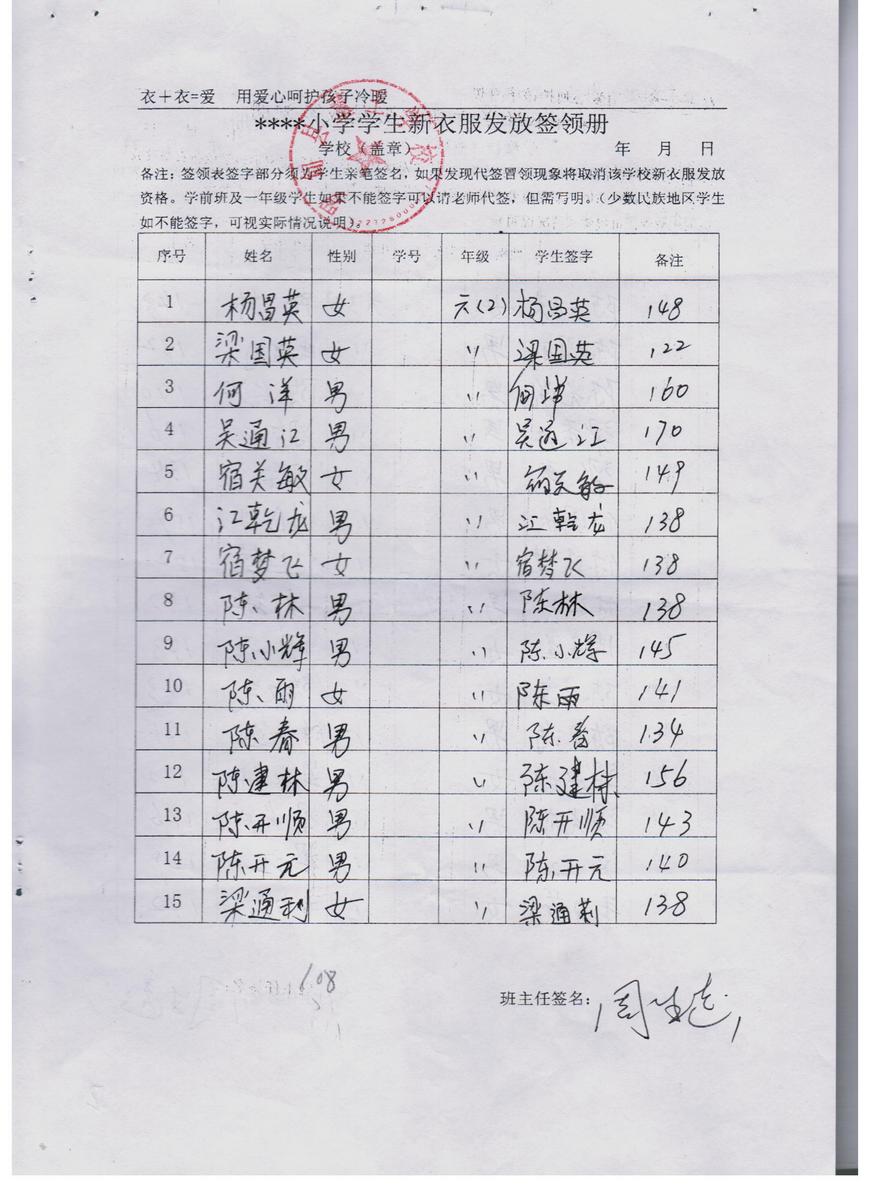 衣+衣=爱 用爱心呵护孩子冷暖
****小学学生新衣服发放签领册
学校（盖章） 年 月 日
备注：签领表签字部分须为学生亲笔签名，如果发现代签冒领现象将取消该学校新衣服发放
资格。学前班及一年级学生如果不能签字可以请老师代签，但需写明。（少数民族地区学生
如不能签字，可视实际情况说明）。
序号 姓名 性别 学号 年级 学生签字 备注
1 杨昌英 女 六(2) 杨昌英 148
2 梁国英 女 〃 梁国英 122
3 何洋 男 〃 何洋 160
4 吴通江 男 〃 吴通江 170
5 宿关敏 女 〃 宿关敏 149
6 江乾龙 男 〃 江乾龙 138
7 宿梦飞 女 〃 宿梦飞 138
8 陈林 男 〃 陈林 138
9 陈小辉 男 〃 陈小辉 145
10 陈雨 女 〃 陈雨 141
11 陈春 男 〃 陈春 134
12 陈建林 男 〃 陈建林 156
13 陈开顺 男 〃 陈开顺 143
14 陈开元 男 〃 陈开元 140
15 梁通利 女 〃 梁通莉 138
108
班主任签名：周生志